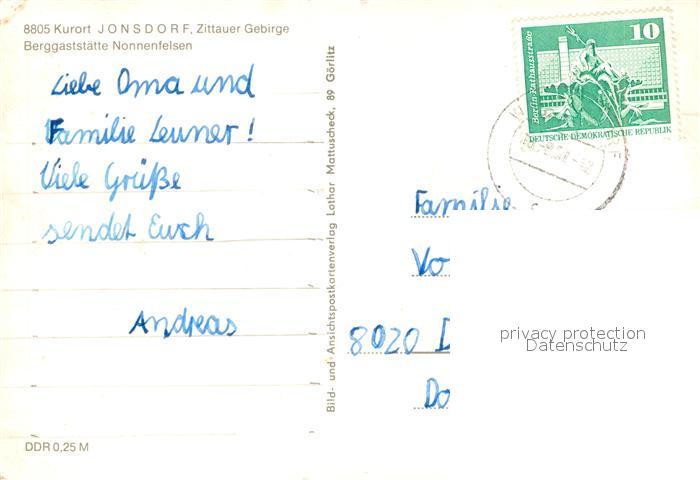 8805 Kurort JONSDORF, Zittauer Gebirge
Berggaststätte Nonnenfelsen
Liebe Oma und
Familie Leuner!
Viele Grüße
sendet Euch
Andreas
DDR 0,25 M
Bild- und Ansichtspostkartenverlag Lothar Mattuscheck, 89 Görlitz
10
Berlin-Rathausstraße
DEUTSCHE DEMOKRATISCHE REPUBLIK
Familie
Vo
8020 D
Do
privacy protection
Datenschutz